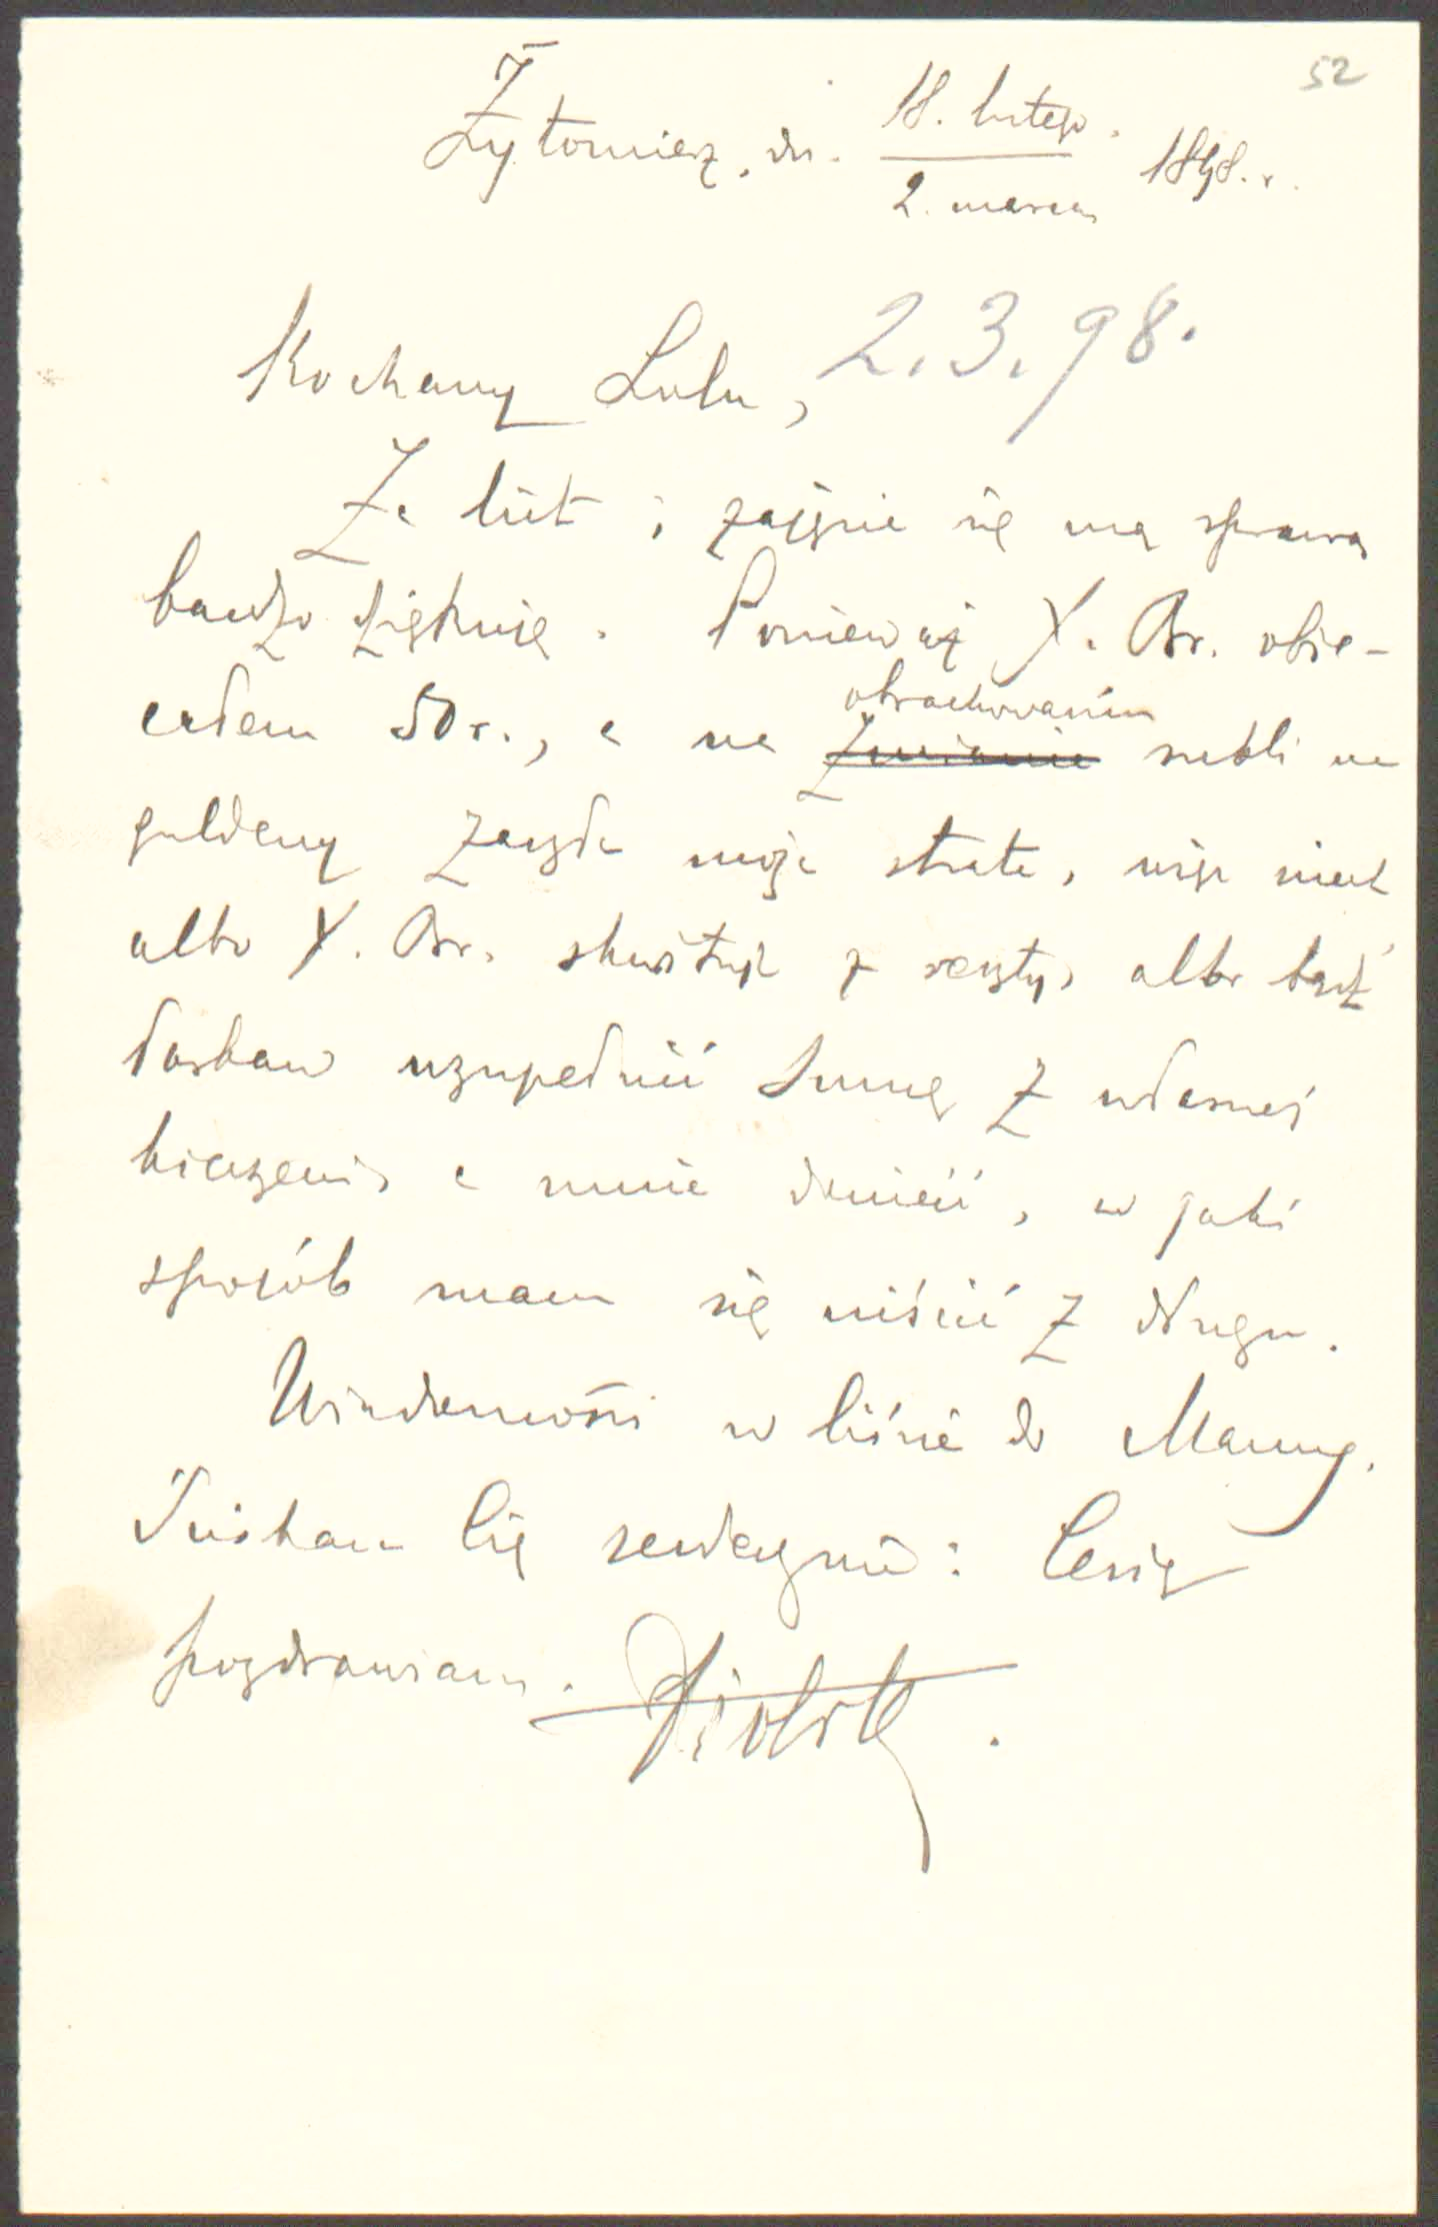 52
Żytomierz, dn. 18. lutego / 2. marca 1898. r.
Kochany Lolu, 2.3.98.
Za list i zajęcie się mą sprawą
bardzo dziękuję. Ponieważ X. Br. obie-
całem 50 r., a na
obrachowaniu
~~zmianie~~ rubli na
guldeny zaszła moja strata, więc niech
albo X. Br. skwituje z reszty, albo bądź
łaskaw uzupełnić sumę z własnej
kieszeni, a mnie donieść, w jaki
sposób mam się uiścić z długu.
Wiadomości w liście do Mamy.
Ściskam Cię serdecznie: Cesię
pozdrawiam. Piotr